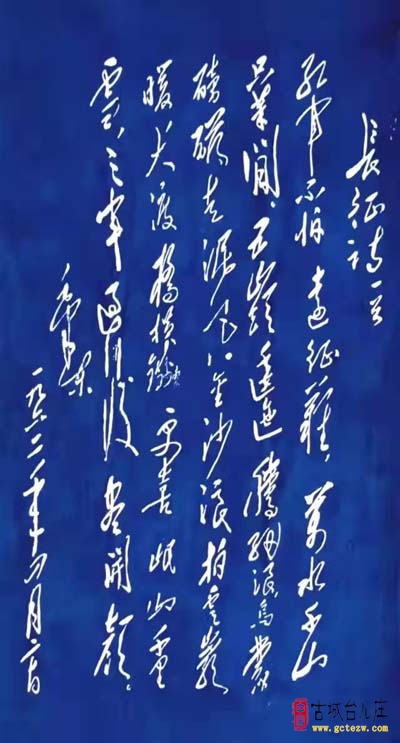 長征诗一首
紅軍不怕遠征難，萬水千山
只等閒，五嶺逶迤騰細浪，烏蒙
磅礴走泥丸。金沙浪拍雲崖
暖，大渡橋横鐵索寒更喜岷山千里
雪，三軍過後盡開顏。
毛澤東
一九六二年四月廿日
古城台儿庄
www.gctezw.com